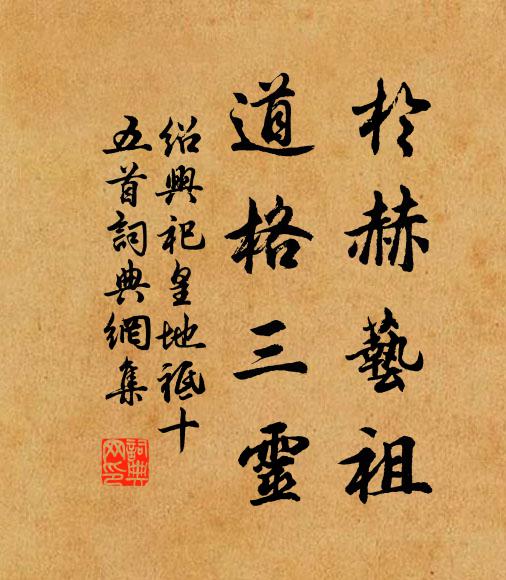 於赫藝祖
道格三靈
紹興祀皇地祗十
五首詞典網集
詞典網印